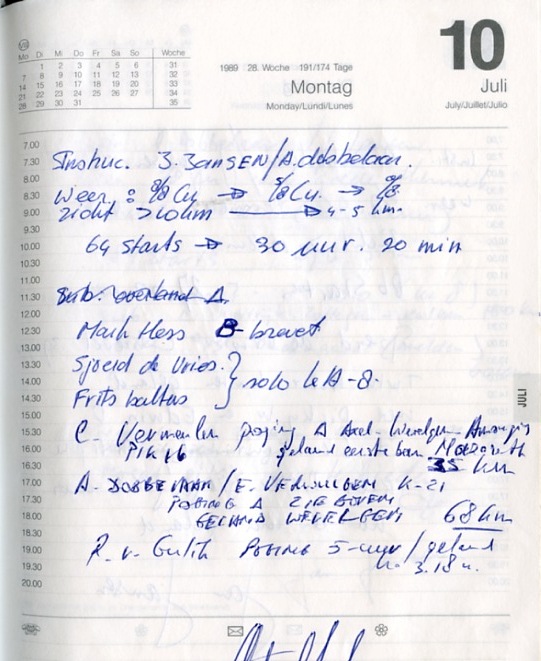 VIII
Mo Di Mi Do Fr Sa So Woche
1 2 3 4 5 6 31
7 8 9 10 11 12 13 32
14 15 16 17 18 19 20 33
21 22 23 24 25 26 27 34
28 29 30 31 35
1989 28. Woche 191/174 Tage
Montag
Monday/Lundi/Lunes
10
Juli
July/Juillet/Julio
7.00
7.30 Instruc. J. JanSEN/A. dobbelaar.
8.00
8.30 Weer : 8/8 Cu → 5/8 Cu. →
9.00 zicht >10 km → 4-5 km.
9.30
10.00 64 starts → 30 uur. 20 min
10.30
11.00
11.30 overland A.
12.00
12.30 Mark Hess B-brevet
13.00
13.30 Sjoerd de Vries.
14.00 solo
14.30 Frits baltus
15.00
15.30 C. Vermeulen poging A Axel-
16.00 geland eerste ban
16.30 35 km
17.00 A. DOBBELAAR / E. K-21
17.30 POGING A
18.00 GELAND WEVELGEM 68 km
18.30
19.00 R. v. Gulik POGING 5-uur / geland
19.30 na 3.18 u.
20.00
JULI